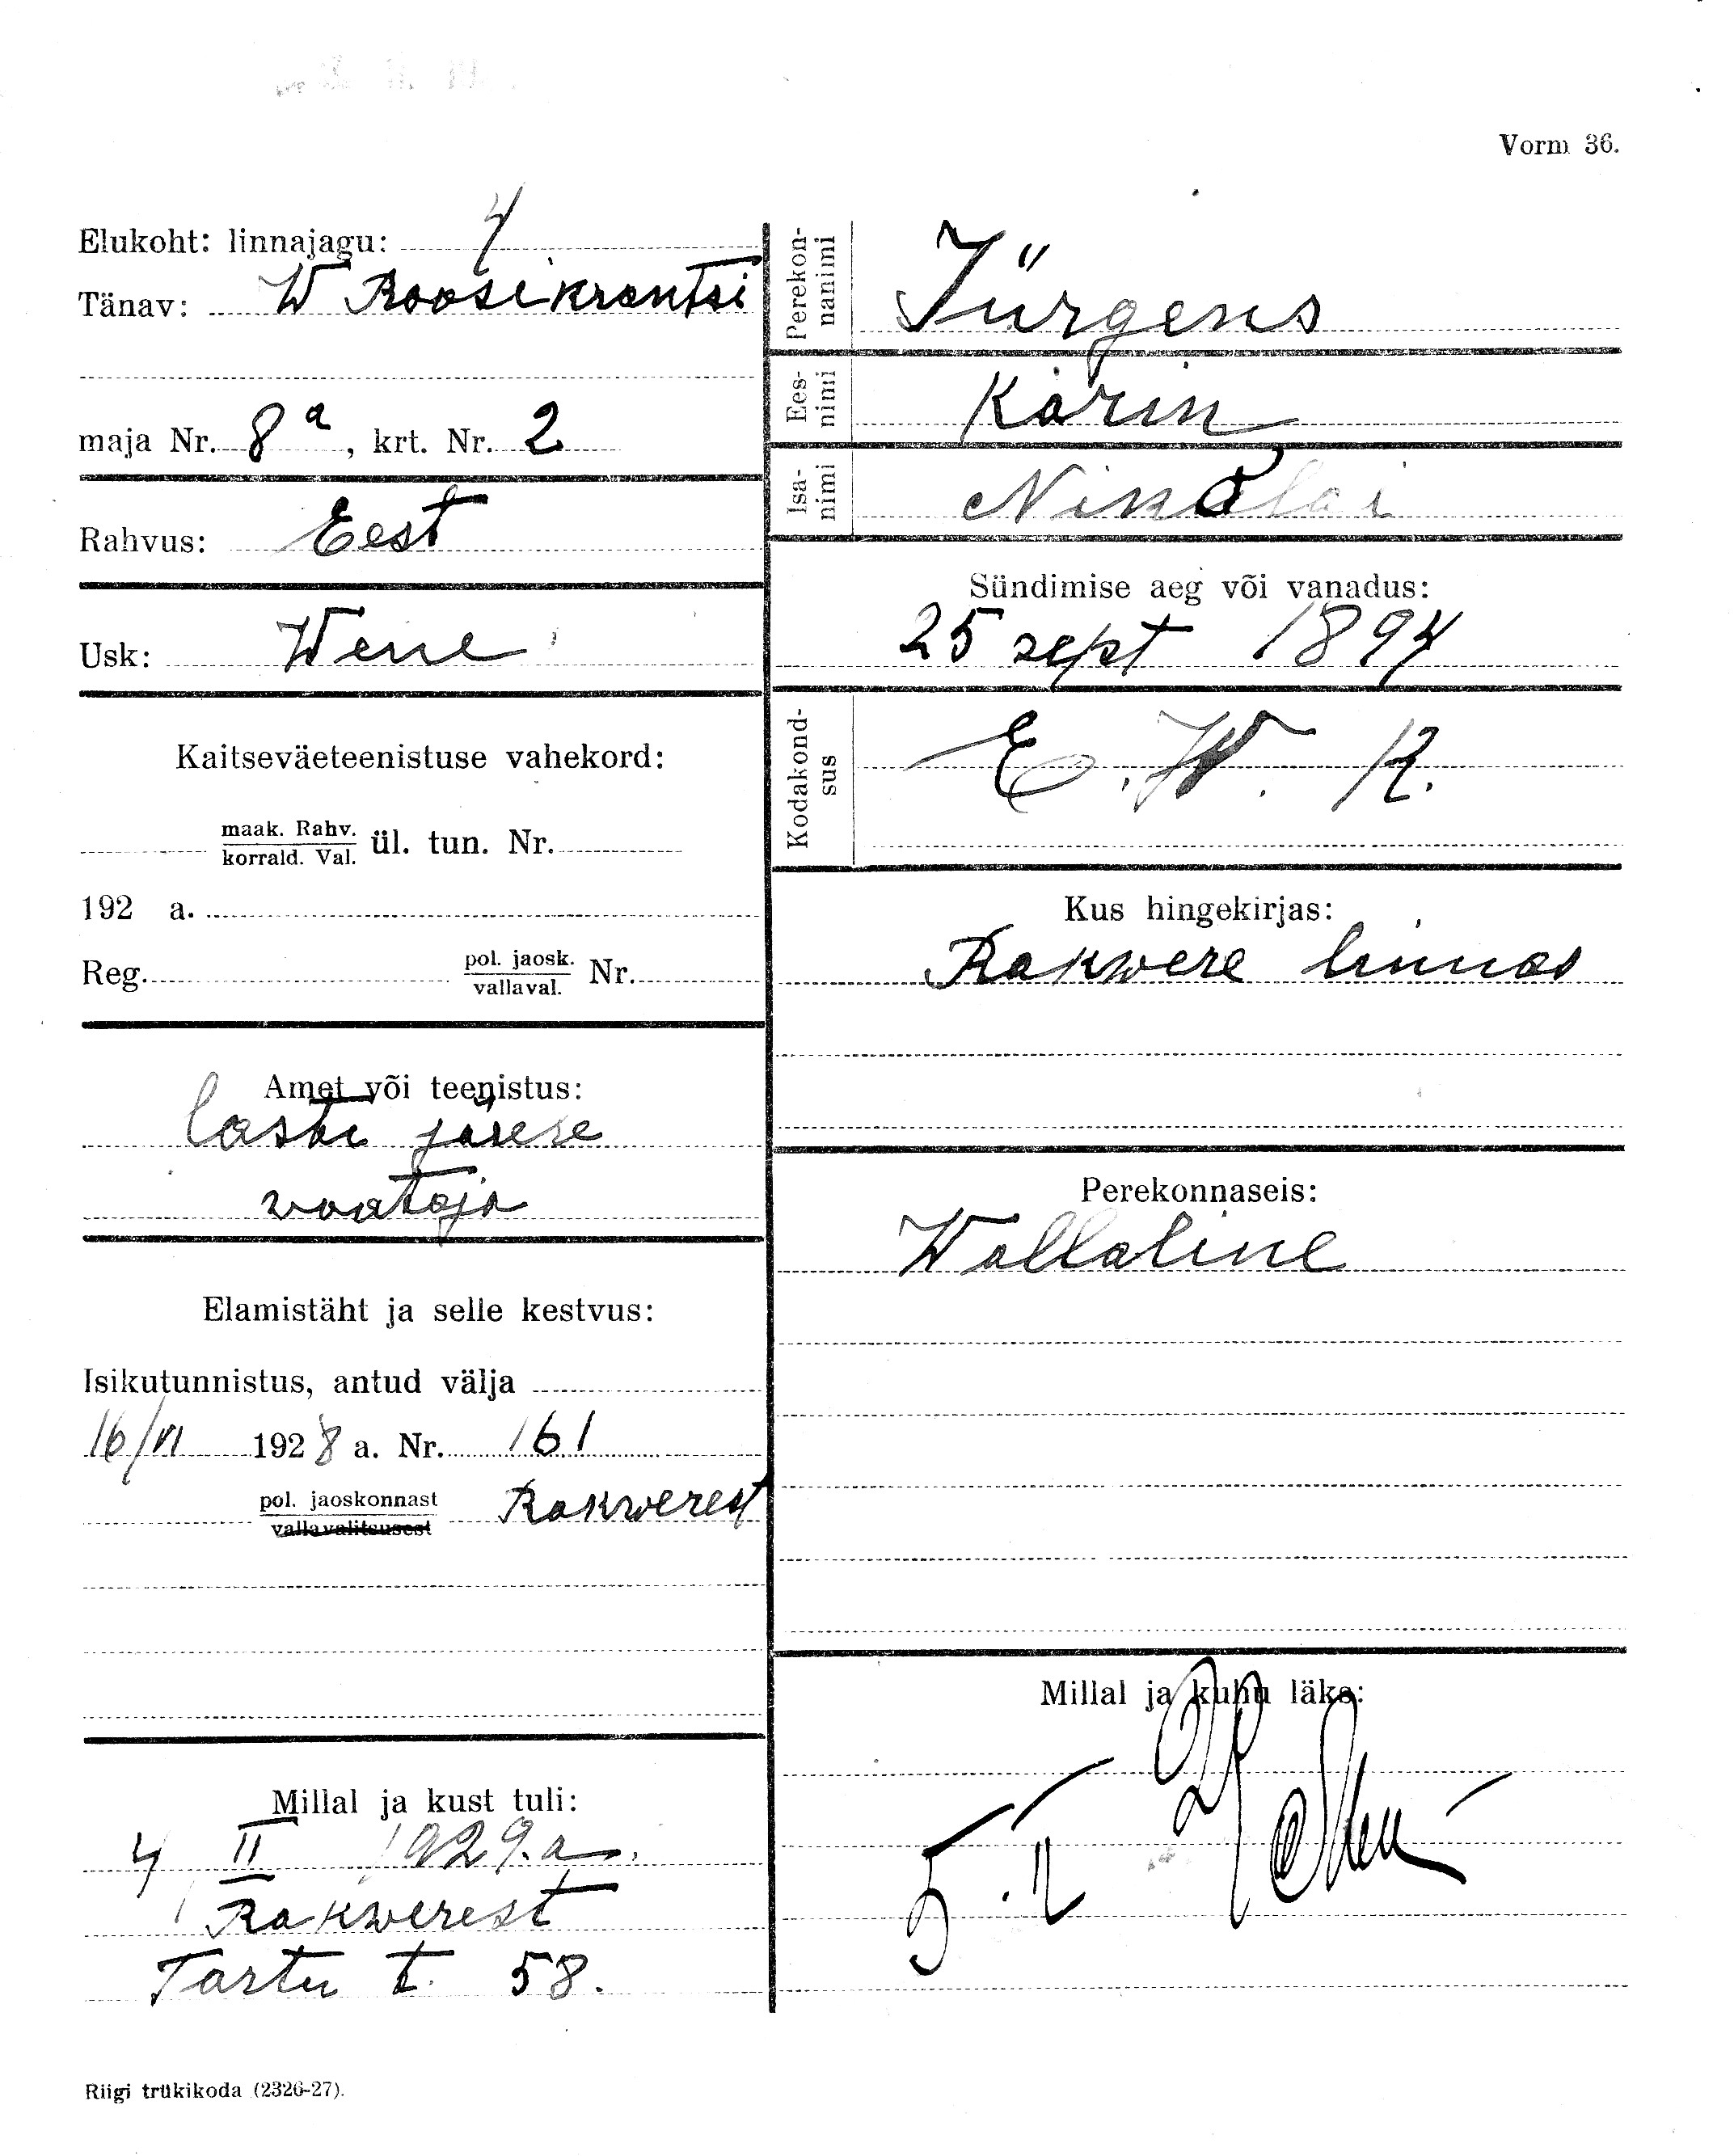 Vorm 36.
Elukoht: linnajagu: 4
Tänav: W Roosikrantsi
maja Nr. 8a, krt. Nr. 2
Rahvus: Eest
Usk: Wene
Kaitseväeteenistuse vahekord:
maak. Rahv.
korrald. Val. ül. tun. Nr.
192 a.
Reg. pol. jaosk.
vallaval. Nr.
Amet või teenistus:
laste järele
waataja
Elamistäht ja selle kestvus:
Isikutunnistus, antud välja
16/VI 1928 a. Nr. 161
pol. jaoskonnast Rakwerest
vallavalitsusest
Millal ja kust tuli:
4 II 1929. a.
Rakwerest
Tartu t. 58.
Perekon-
nanimi Jürgens
Ees-
nimi Karin
Isa-
nimi Nikolai
Sündimise aeg või vanadus:
25 sept 1894
Kodakond-
sus E. W. K.
Kus hingekirjas:
Rakwere linnas
Perekonnaseis:
Wallaline
Millal ja kuhu läks:
5. II
Riigi trükikoda (2326-27).